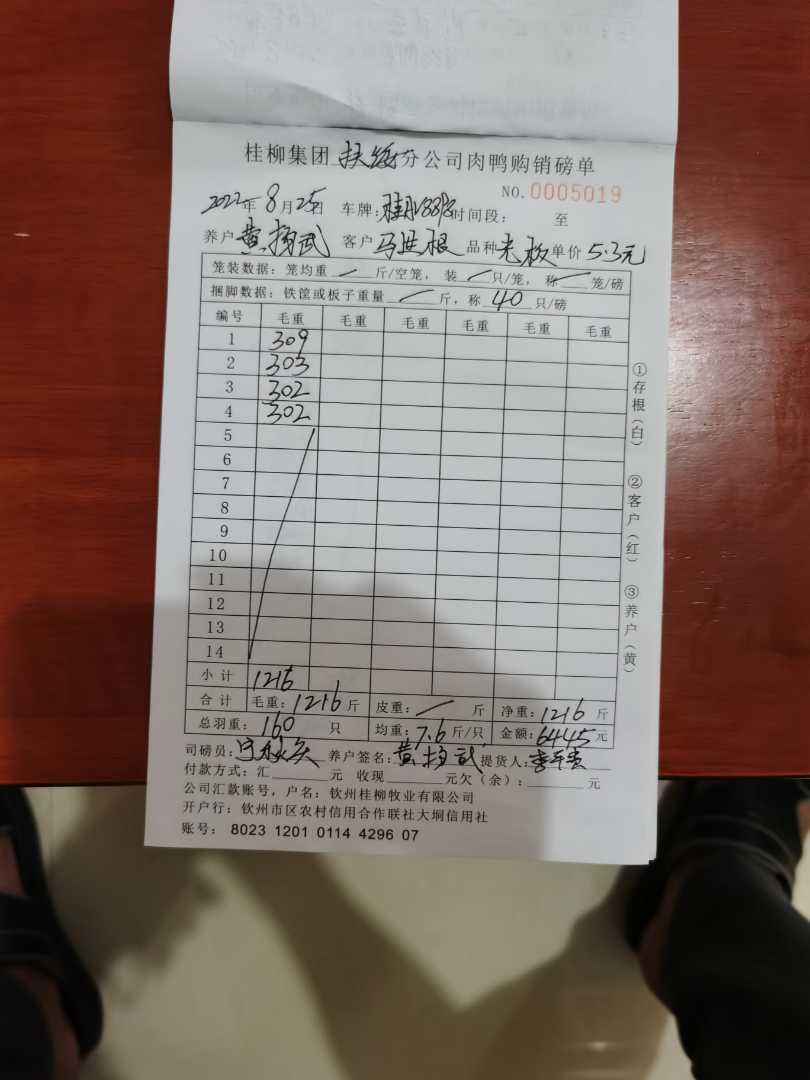 桂柳集团 扶绥 分公司肉鸭购销磅单
NO.0005019
2022年 8月25日 车牌: 时间段: 至
养户 黄扬武 客户 马进根 品种 单价 5.3元
笼装数据: 笼均重 / 斤/空笼, 装 / 只/笼, 称 / 笼/磅
捆脚数据: 铁筐或板子重量 / 斤, 称 40 只/磅
编号 毛重 毛重 毛重 毛重 毛重 毛重
1 309
2 303
3 302
4 302
5
6
7
8
9
10
11
12
13
14
小计 1216
合计 毛重: 1216 斤 皮重: / 斤 净重: 1216 斤
总羽重: 160 只 均重: 7.6 斤/只 金额: 6445 元
司磅员: 养户签名: 黄扬武 提货人:
付款方式: 汇 元 收现 元欠(余): 元
公司汇款账号, 户名: 钦州桂柳牧业有限公司
开户行: 钦州市区农村信用合作联社大垌信用社
账号: 8023 1201 0114 4296 07
①存根(白)
②客户(红)
③养户(黄)